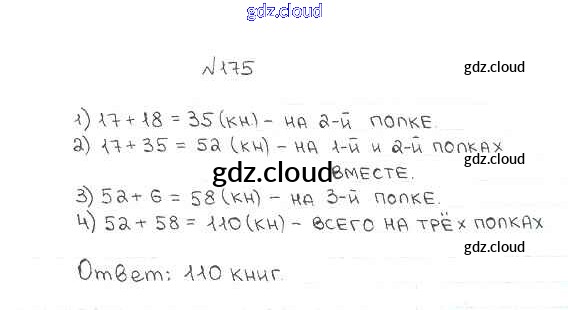 gdz.cloud
№175
gdz.cloud
1) 17 + 18 = 35 (кн) - на 2-й полке.
2) 17 + 35 = 52 (кн) - на 1-й и 2-й полках
вместе.
gdz.cloud
3) 52 + 6 = 58 (кн) - на 3-й полке.
4) 52 + 58 = 110 (кн) - всего на трёх полках
gdz.cloud
Ответ: 110 книг.
gdz.cloud